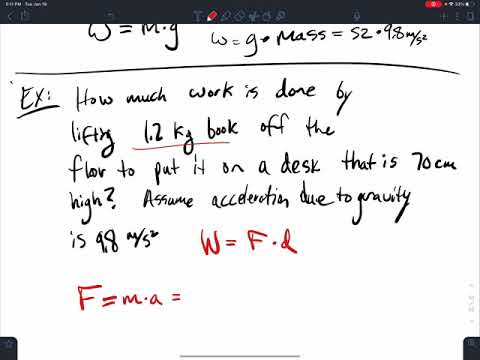 5:11 PM Tue Jan 19
53%
W = m·g
w=g•mass=52•9.8 m/s²
Ex: How much work is done by
lifting 1.2 kg book off the
floor to put it on a desk that is 70 cm
high? Assume acceleration due to gravity
is 9.8 m/s² W = F·d
F=m·a=